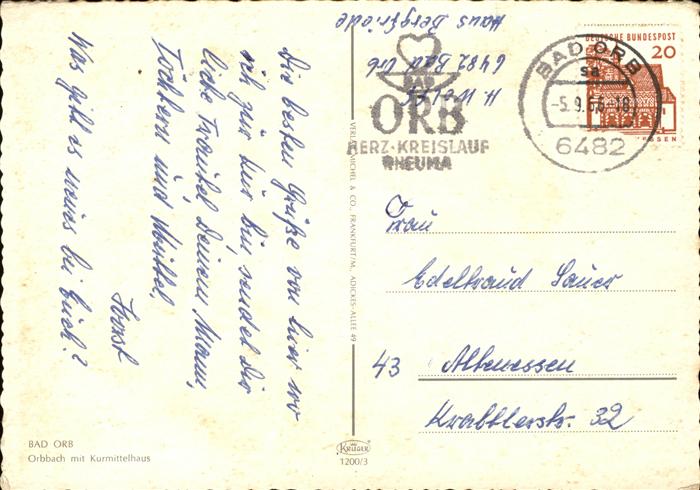 Die besten Grüße von hier wo
ich zur Kur bin, sendet Dir
liebe Trautel Deinem Mann,
Töchtern und Mutter,
Horst
Was gibt es neues bei Euch?
H. Weiss
6482 Bad Orb
Haus Bergfriede
BAD
ORB
HERZ·KREISLAUF
RHEUMA
BAD ORB
sa
-5.9.66-18
6482
DEUTSCHE BUNDESPOST
20
ESSEN
Frau
Edeltraud Sauer
43 Altenessen
Krablerstr. 32
MICHEL & CO., FRANKFURT/M., ADICKES-ALLEE 49
KRÜGER
1200/3
BAD ORB
Orbbach mit Kurmittelhaus